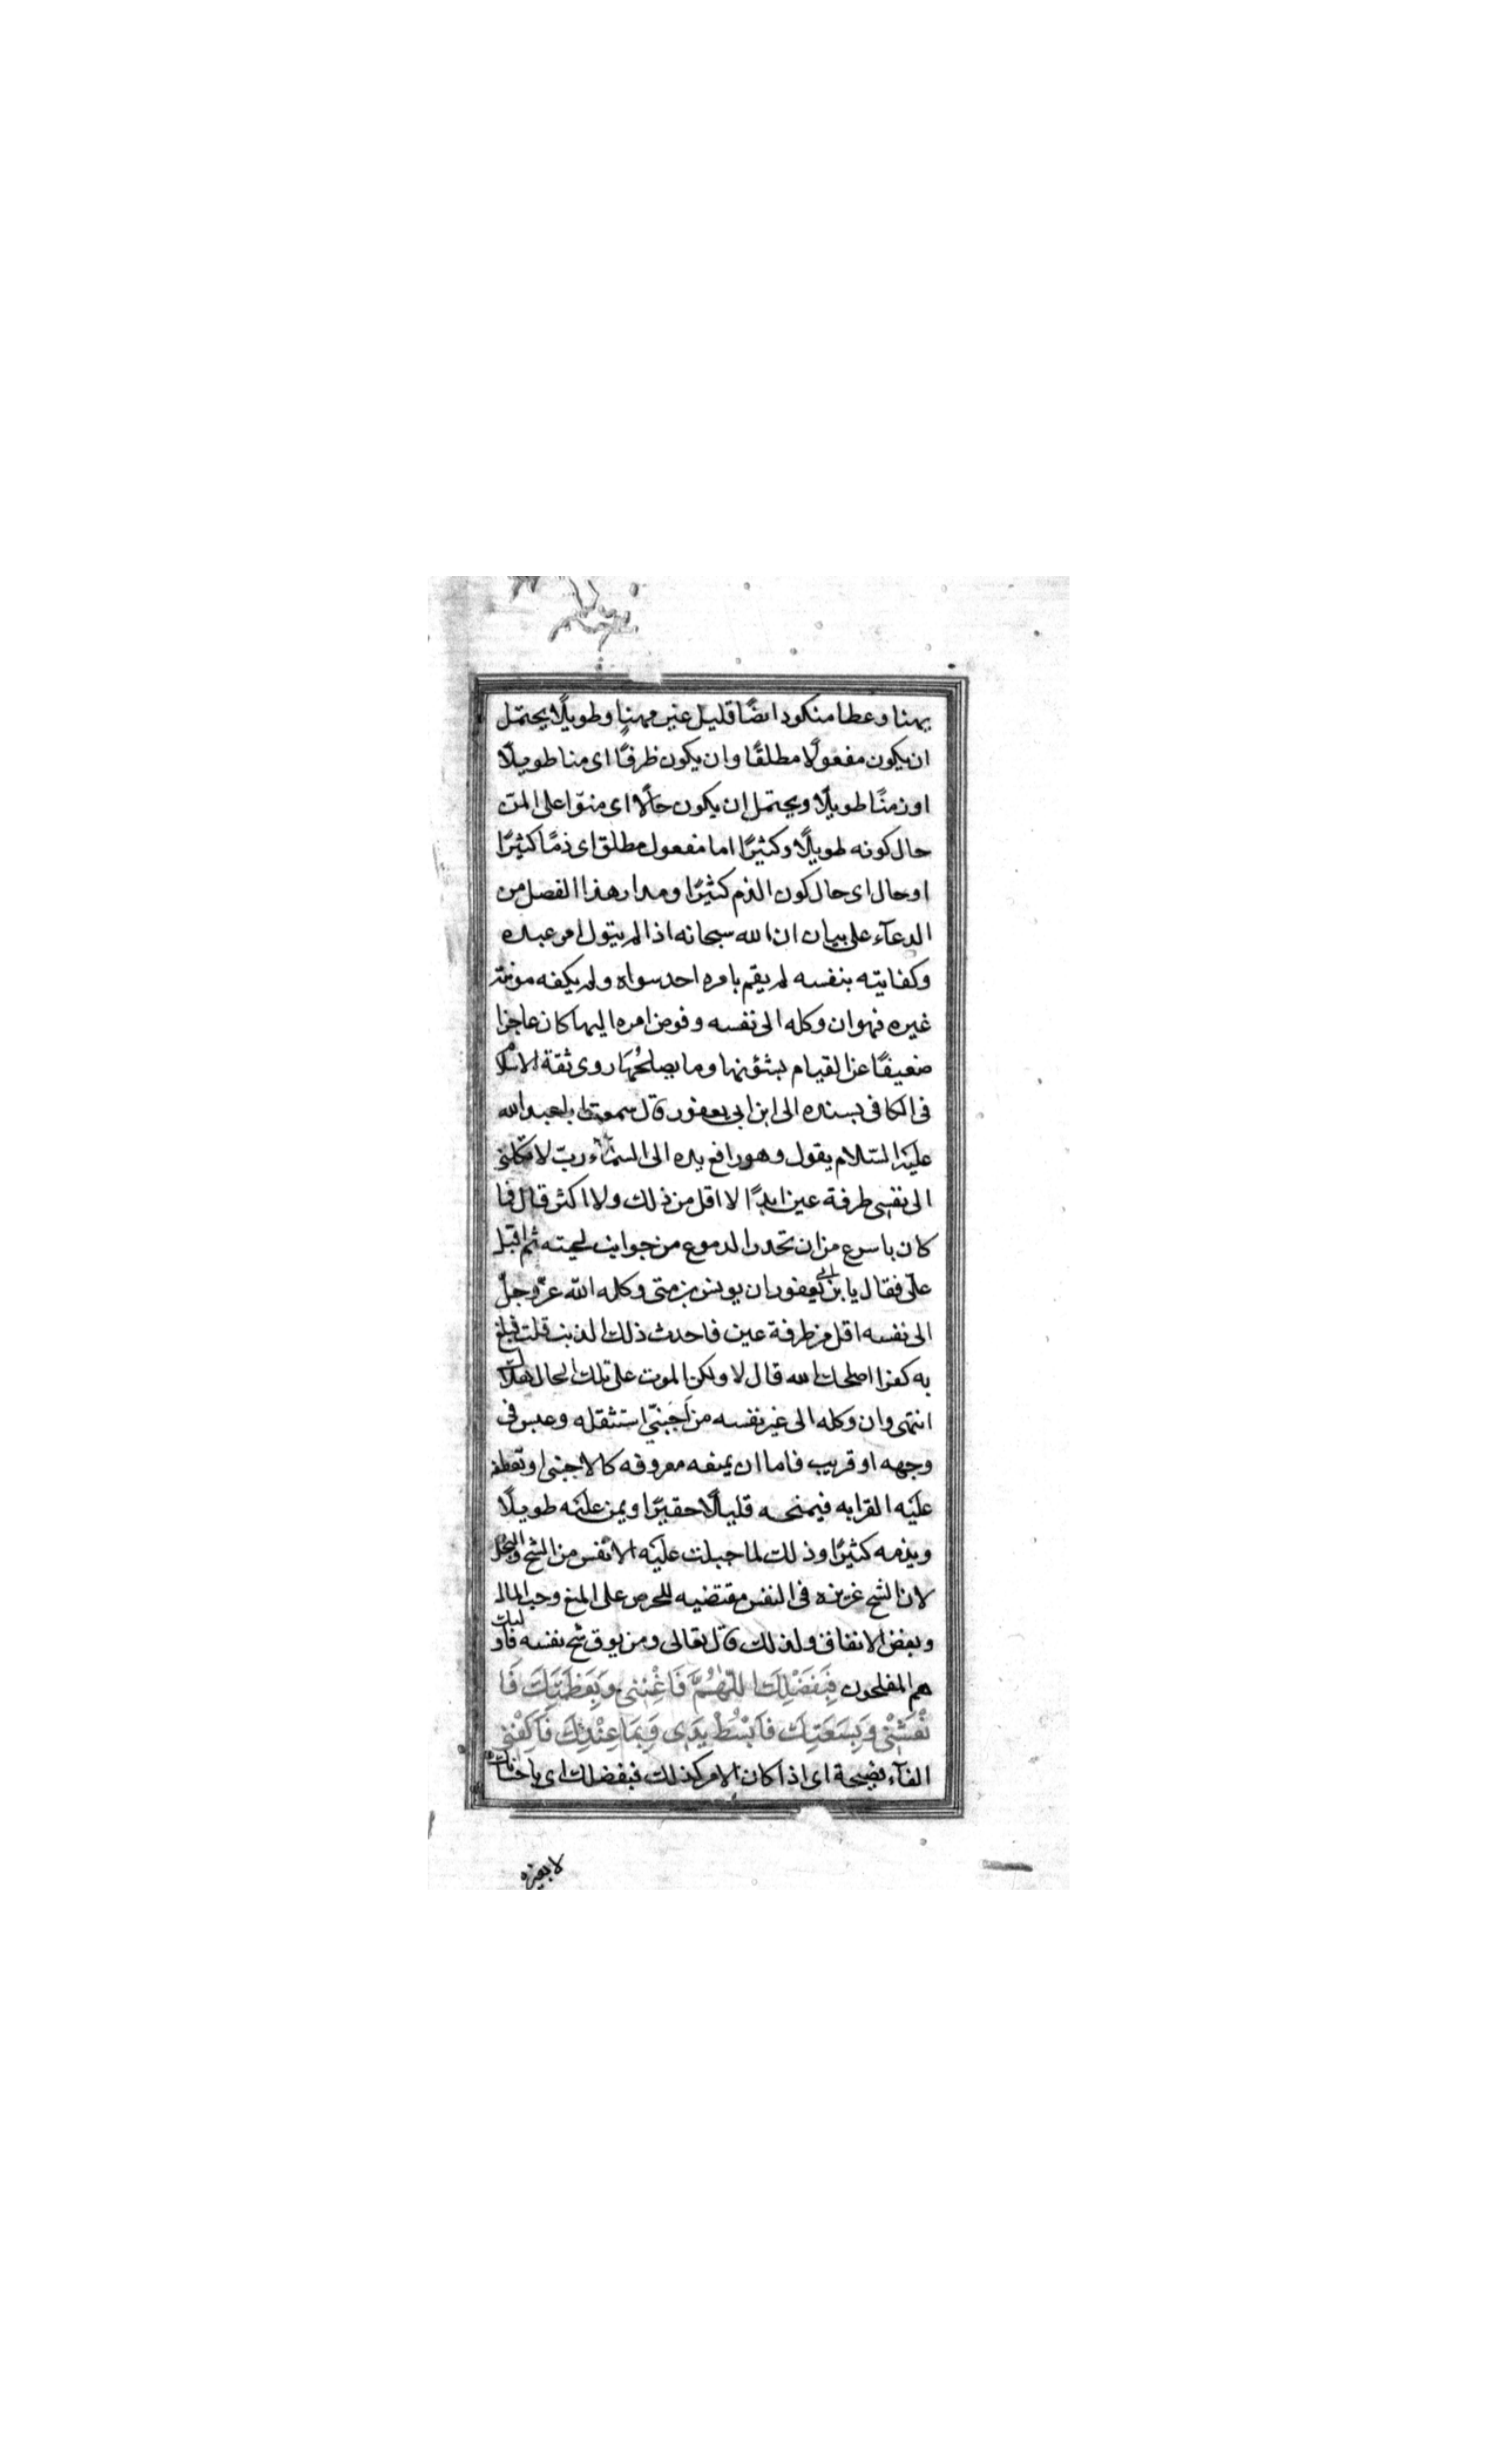 يهنا وعطا منكود ايضًا قليل غير مهنا وطويلًا يحتمل
ان يكون مفعولًا مطلقًا وان يكون ظرفًا اى منا طويلًا
او زمنًا طويلًا ويحتمل ان يكون حالًا اى منوا على المن
حال كونه طويلًا وكثيرًا اما مفعول مطلق اى ذمًا كثيرًا
او حال اى حال كون الذم كثيرًا ومدار هذا الفصل من
الدعآء على بيان ان الله سبحانه اذا لم يتول امر عبده
وكفايته بنفسه لم يقم بامره احد سواه ولم يكفه مونته
غيره فهو ان وكله الى نفسه وفوض امره اليها كان عاجزا
ضعيفًا عن القيام بشؤنها وما يصلحُهَا روى ثقة الاسلام
فى الكافى بسنده الى ابن ابى يعفور قال سمعت ابا عبد الله
عليه السّلام يقول وهو رافع يده الى السمآء ربّ لا تكلنى
الى نفسى طرفة عين ابدًا لا اقل من ذلك ولا اكثر قال فما
كان باسرع من ان تحدر الدموع من جوانب لحيته ثم اقبل
علىّ فقال يا بن ابى يعفور ان يونس بن متى وكله الله عزّ وجلّ
الى نفسه اقل من طرفة عين فاحدث ذلك الذنب قلت فبلغ
به كفرا اصلحك الله قال لا ولكن الموت على تلك الحال هلاك
انتهى وان وكله الى غير نفسه من اَجنبىّ استثقله وعبس فى
وجهه او قريب فاما ان يمنعه معروفه كالاجنبى او تعطفه
عليه القرابه فيمنحه قليلًا حقيرًا ويمن عليه طويلًا
ويذمه كثيرًا وذلك لما جبلت عليه الانفس من الشح والبخل
لان الشح غريزه فى النفس مقتضيه للحرص على المنع وحب المال
وبغض الانفاق ولذلك قال تعالى ومن يوق شح نفسه فاولئك
هم المفلحون فَبِفَضْلِكَ اللّهُمَّ فَاغْنِنى وَبِعَظَمَتِكَ فَا
نْعَشْنى وَبِسَعَتِكَ فَابْسُطْ يَدى وَبِمَا عِنْدَكَ فَاكْفِنى
الفآء فصيحة اى اذا كان الامر كذلك فبفضلك اى باحسانك
لا بغيره